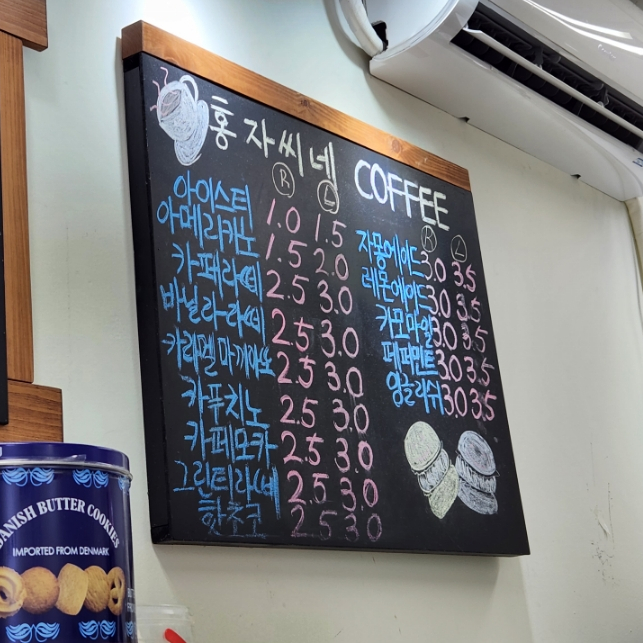 홍자씨네 COFFEE
R L
아이스티 1.0 1.5
아메리카노 1.5 2.0
카페라떼 2.5 3.0
바닐라라떼 2.5 3.0
카라멜마끼아또 2.5 3.0
카푸치노 2.5 3.0
카페모카 2.5 3.0
그린티라떼 2.5 3.0
핫초코 2.5 3.0
R L
자몽에이드 3.0 3.5
레몬에이드 3.0 3.5
카모마일 3.0 3.5
페퍼민트 3.0 3.5
잉글리쉬 3.0 3.5
DANISH BUTTER COOKIES
IMPORTED FROM DENMARK